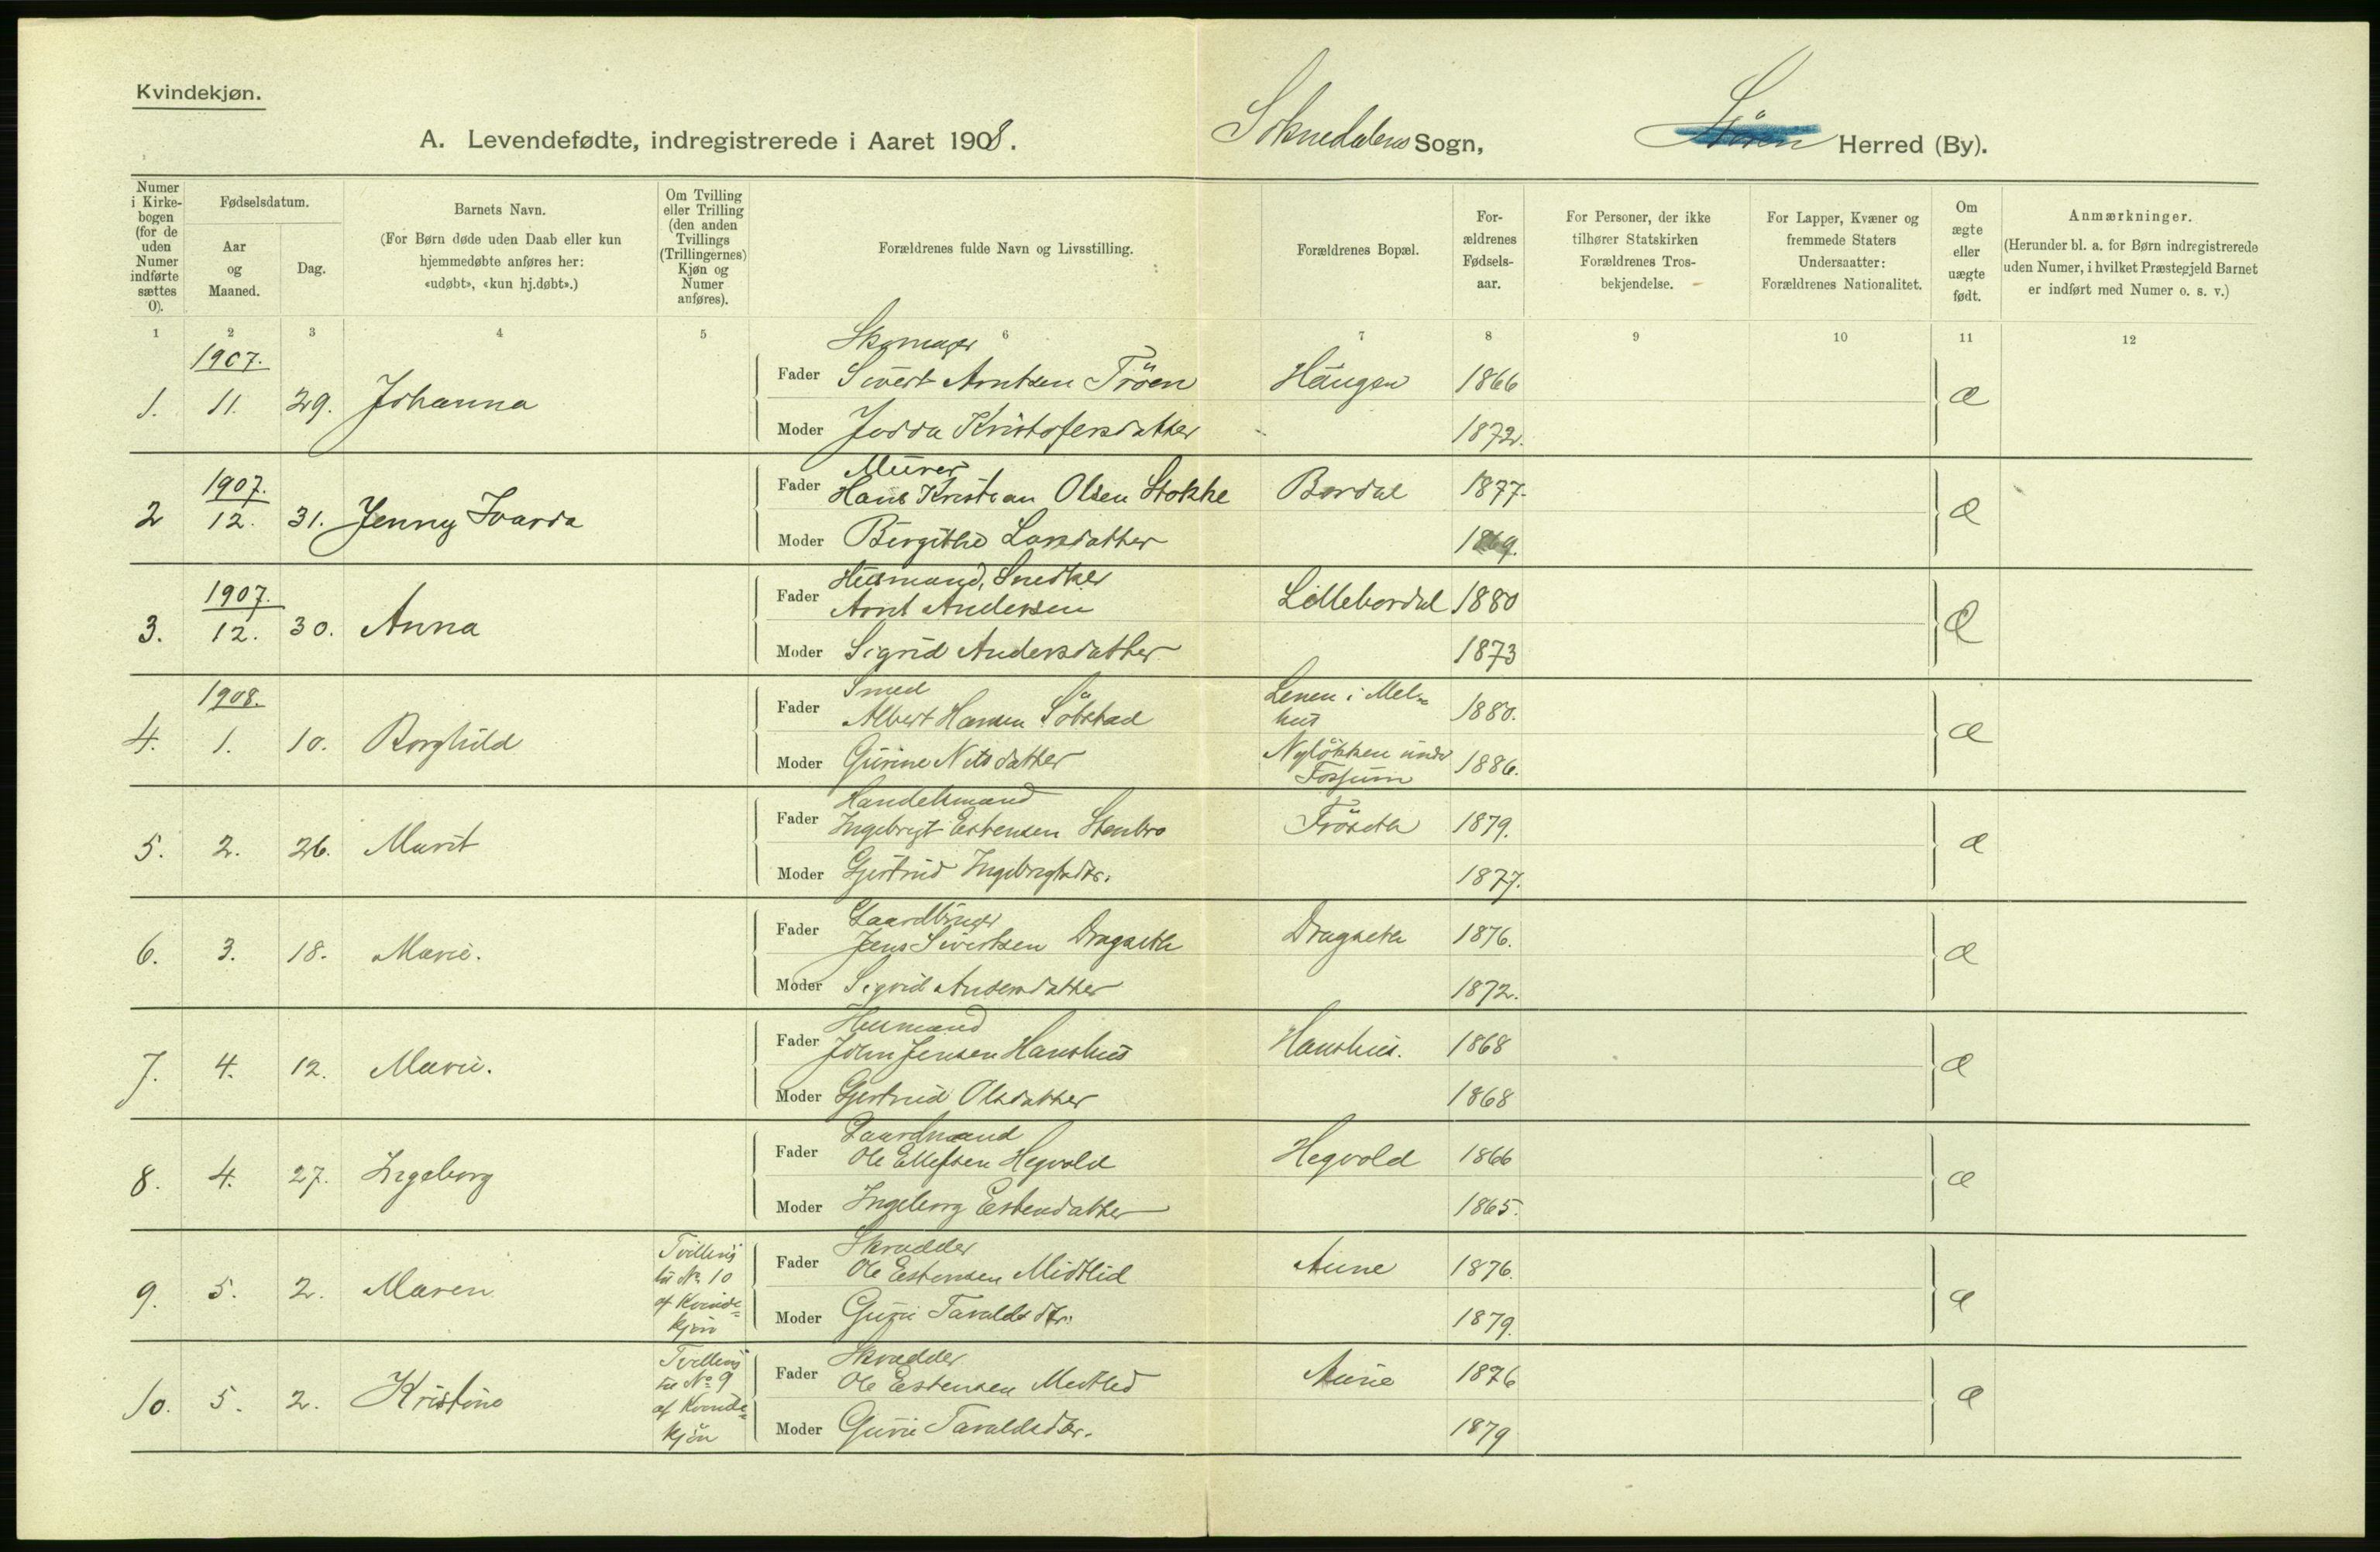 Kvindekjøn.
A. Levendefødte, indregistrerede i Aaret 1908.
Soknedalens Sogn, Støren Herred (By).
Numer i Kirke-bogen (for de uden Numer indførte sættes 0).
Fødselsdatum.
Aar og Maaned.
Dag.
Barnets Navn.
(For Børn døde uden Daab eller kun hjemmedøbte anføres her: «udøbt», «kun hj.døbt».)
Om Tvilling eller Trilling (den anden Tvillings (Trillingernes) Kjøn og Numer anføres).
Forældrenes fulde Navn og Livsstilling.
Forældrenes Bopæl.
For-ældrenes Fødsels-aar.
For Personer, der ikke tilhører Statskirken Forældrenes Tros-bekjendelse.
For Lapper, Kvæner og fremmede Staters Undersaatter: Forældrenes Nationalitet.
Om ægte eller uægte født.
Anmærkninger.
(Herunder bl. a. for Børn indregistrerede uden Numer, i hvilket Præstegjeld Barnet er indført med Numer o. s. v.)
1 2 3 4 5 6 7 8 9 10 11 12
1907.
Skomager
1. 11. 29. Johanna Fader Sivert Arntsen Tröen Haugen 1866 æ
Moder Jodda Kristofersdatter 1872.
1907.
Murer
2 12. 31. Jenny Ivarda Fader Hans Kristian Olsen Stokke Bordal 1877. æ
Moder Birgitte Larsdatter 1869.
1907.
Husmand, Snedker
3. 12. 30. Anna Fader Arnt Andersen Lillebordal 1880 Æ
Moder Sigrid Andersdatter 1873
1908.
Smed Lenen i Mel=
4. 1. 10. Borghild Fader Albert Hansen Söbstad hus 1880. æ
Moder Gurine Nilsdatter Nyløkken under Fossum 1886.
Handelsmand
5. 2. 26. Marit Fader Ingebrigt Estensen Stenbro Fröseth 1879. æ
Moder Gjertrud Ingebrigtsdtr. 1877.
Gaardbruger
6. 3. 18. Marie. Fader Jens Sivertsen Dragseth Dragseth 1876. æ
Moder Sigrid Andersdatter 1872.
Husmand
7. 4. 12. Marie. Fader John Jensen Hanshus Hanshus. 1868 æ
Moder Gjertrud Olsdatter 1868
Gaardmand
8. 4. 27. Ingeborg Fader Ole Ellefsen Hegvold Hegvold 1866 æ
Moder Ingeborg Estensdatter 1865.
Skrædder
9. 5. 2. Maren Tvilling til No 10 af Kvinde=kjön Fader Ole Estensen Midtlid Aune 1876. æ
Moder Guri Tavaldsdtr. 1879.
Skrædder
10. 5. 2. Kristine Tvilling til No 9 af Kvinde=kjön Fader Ole Estensen Midtlid Aune 1876 æ
Moder Guri Tavaldsdtr. 1879